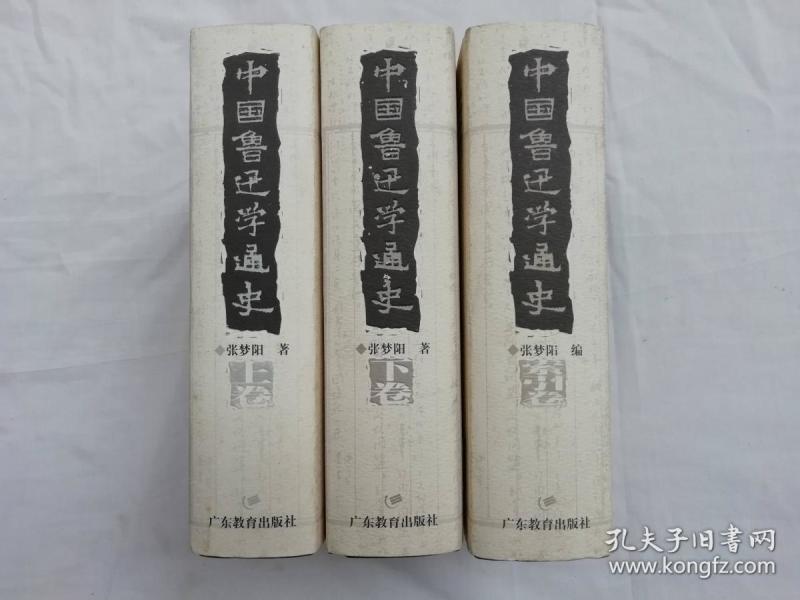 中国鲁迅学通史
张梦阳 著
上卷
广东教育出版社
中国鲁迅学通史
张梦阳 著
下卷
广东教育出版社
中国鲁迅学通史
张梦阳 编
索引卷
广东教育出版社
孔夫子旧书网
www.kongfz.com